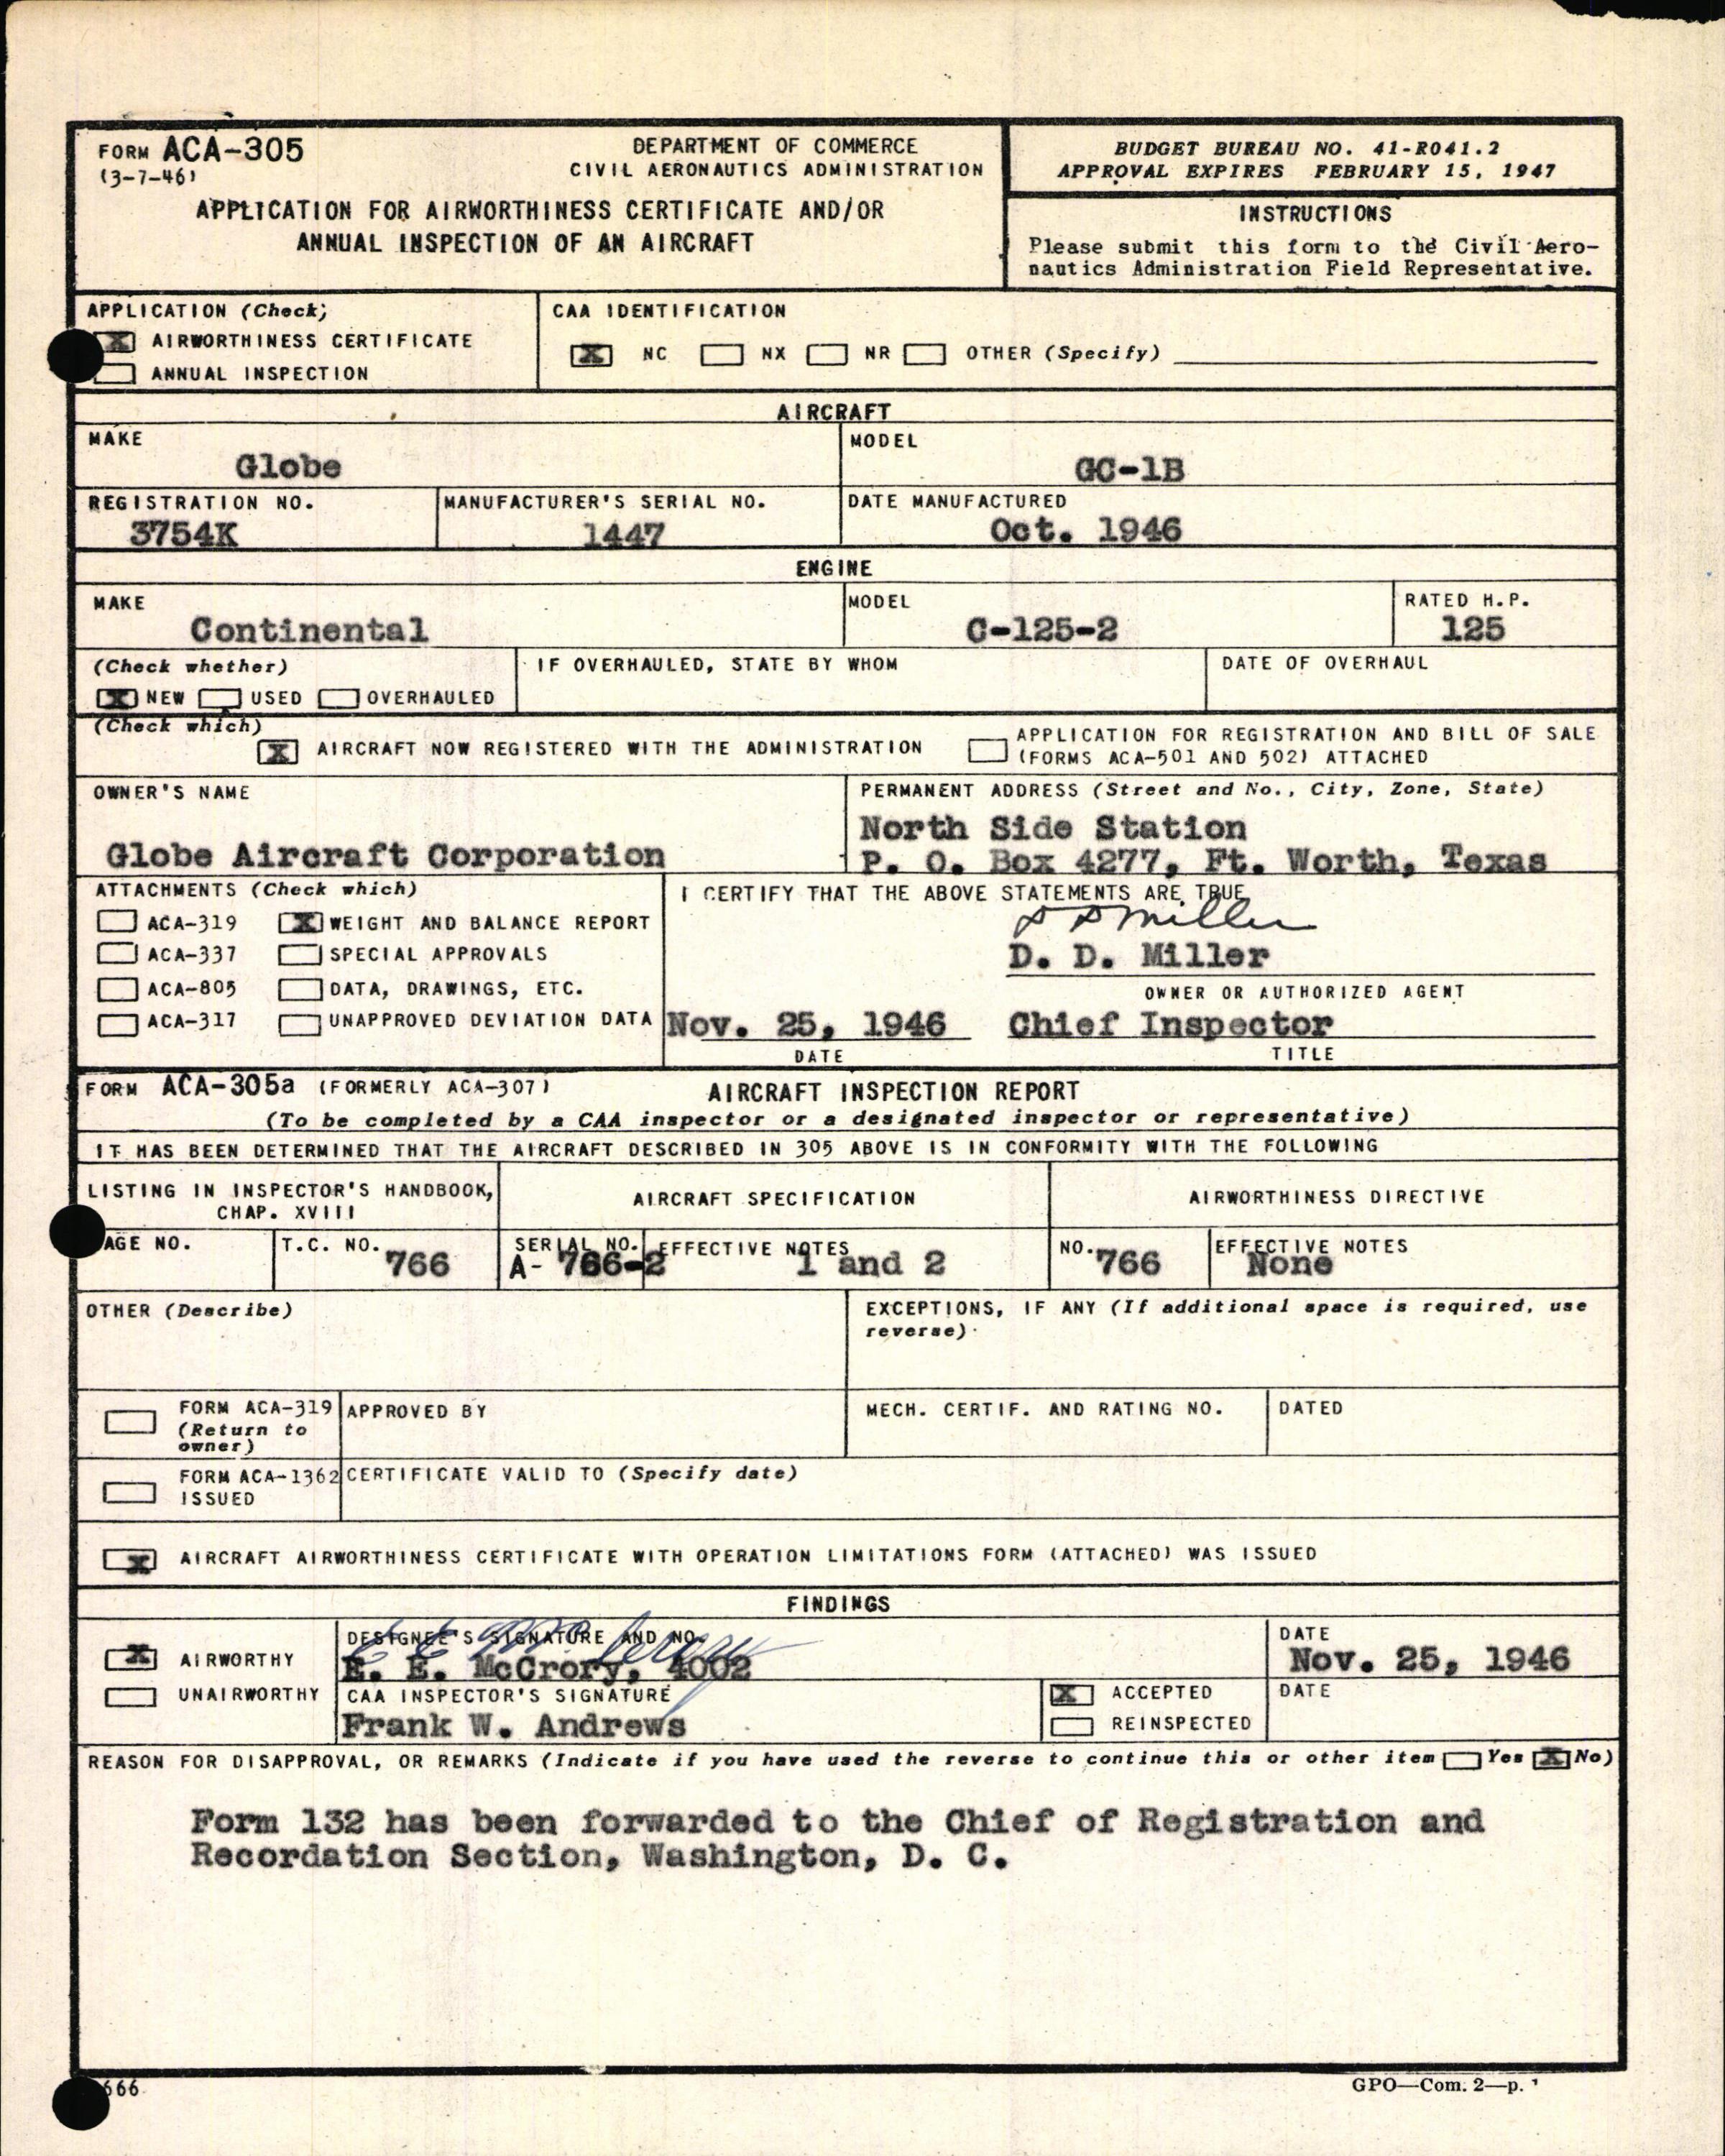 FORM ACA-305
(3-7-46)
DEPARTMENT OF COMMERCE
CIVIL AERONAUTICS ADMINISTRATION
APPLICATION FOR AIRWORTHINESS CERTIFICATE AND/OR
ANNUAL INSPECTION OF AN AIRCRAFT
BUDGET BUREAU NO. 41-R041.2
APPROVAL EXPIRES FEBRUARY 15, 1947
INSTRUCTIONS
Please submit this form to the Civil Aero-
nautics Administration Field Representative.
APPLICATION (Check)
X AIRWORTHINESS CERTIFICATE
ANNUAL INSPECTION
CAA IDENTIFICATION
X NC NX NR OTHER (Specify)
AIRCRAFT
MAKE
Globe
MODEL
GC-1B
REGISTRATION NO.
3754K
MANUFACTURER'S SERIAL NO.
1447
DATE MANUFACTURED
Oct. 1946
ENGINE
MAKE
Continental
MODEL
C-125-2
RATED H.P.
125
(Check whether)
X NEW USED OVERHAULED
IF OVERHAULED, STATE BY WHOM
DATE OF OVERHAUL
(Check which)
X AIRCRAFT NOW REGISTERED WITH THE ADMINISTRATION
APPLICATION FOR REGISTRATION AND BILL OF SALE
(FORMS ACA-501 AND 502) ATTACHED
OWNER'S NAME
Globe Aircraft Corporation
PERMANENT ADDRESS (Street and No., City, Zone, State)
North Side Station
P. O. Box 4277, Ft. Worth, Texas
ATTACHMENTS (Check which)
ACA-319 X WEIGHT AND BALANCE REPORT
ACA-337 SPECIAL APPROVALS
ACA-805 DATA, DRAWINGS, ETC.
ACA-317 UNAPPROVED DEVIATION DATA
I CERTIFY THAT THE ABOVE STATEMENTS ARE TRUE
D D Miller
D. D. Miller
OWNER OR AUTHORIZED AGENT
Nov. 25, 1946 Chief Inspector
DATE TITLE
FORM ACA-305a (FORMERLY ACA-307) AIRCRAFT INSPECTION REPORT
(To be completed by a CAA inspector or a designated inspector or representative)
IT HAS BEEN DETERMINED THAT THE AIRCRAFT DESCRIBED IN 305 ABOVE IS IN CONFORMITY WITH THE FOLLOWING
LISTING IN INSPECTOR'S HANDBOOK,
CHAP. XVIII
AIRCRAFT SPECIFICATION
AIRWORTHINESS DIRECTIVE
AGE NO.
T.C. NO. 766
SERIAL NO.
A- 766-2
EFFECTIVE NOTES
1 and 2
NO. 766
EFFECTIVE NOTES
None
OTHER (Describe)
EXCEPTIONS, IF ANY (If additional space is required, use
reverse)
FORM ACA-319
(Return to
owner)
APPROVED BY
MECH. CERTIF. AND RATING NO.
DATED
FORM ACA-1362
ISSUED
CERTIFICATE VALID TO (Specify date)
X AIRCRAFT AIRWORTHINESS CERTIFICATE WITH OPERATION LIMITATIONS FORM (ATTACHED) WAS ISSUED
FINDINGS
X AIRWORTHY
UNAIRWORTHY
DESIGNEE'S SIGNATURE AND NO.
E E McCrory
E. E. McCrory, 4002
DATE
Nov. 25, 1946
CAA INSPECTOR'S SIGNATURE
Frank W. Andrews
X ACCEPTED
REINSPECTED
DATE
REASON FOR DISAPPROVAL, OR REMARKS (Indicate if you have used the reverse to continue this or other item Yes X No)
Form 132 has been forwarded to the Chief of Registration and
Recordation Section, Washington, D. C.
666
GPO—Com. 2—p.